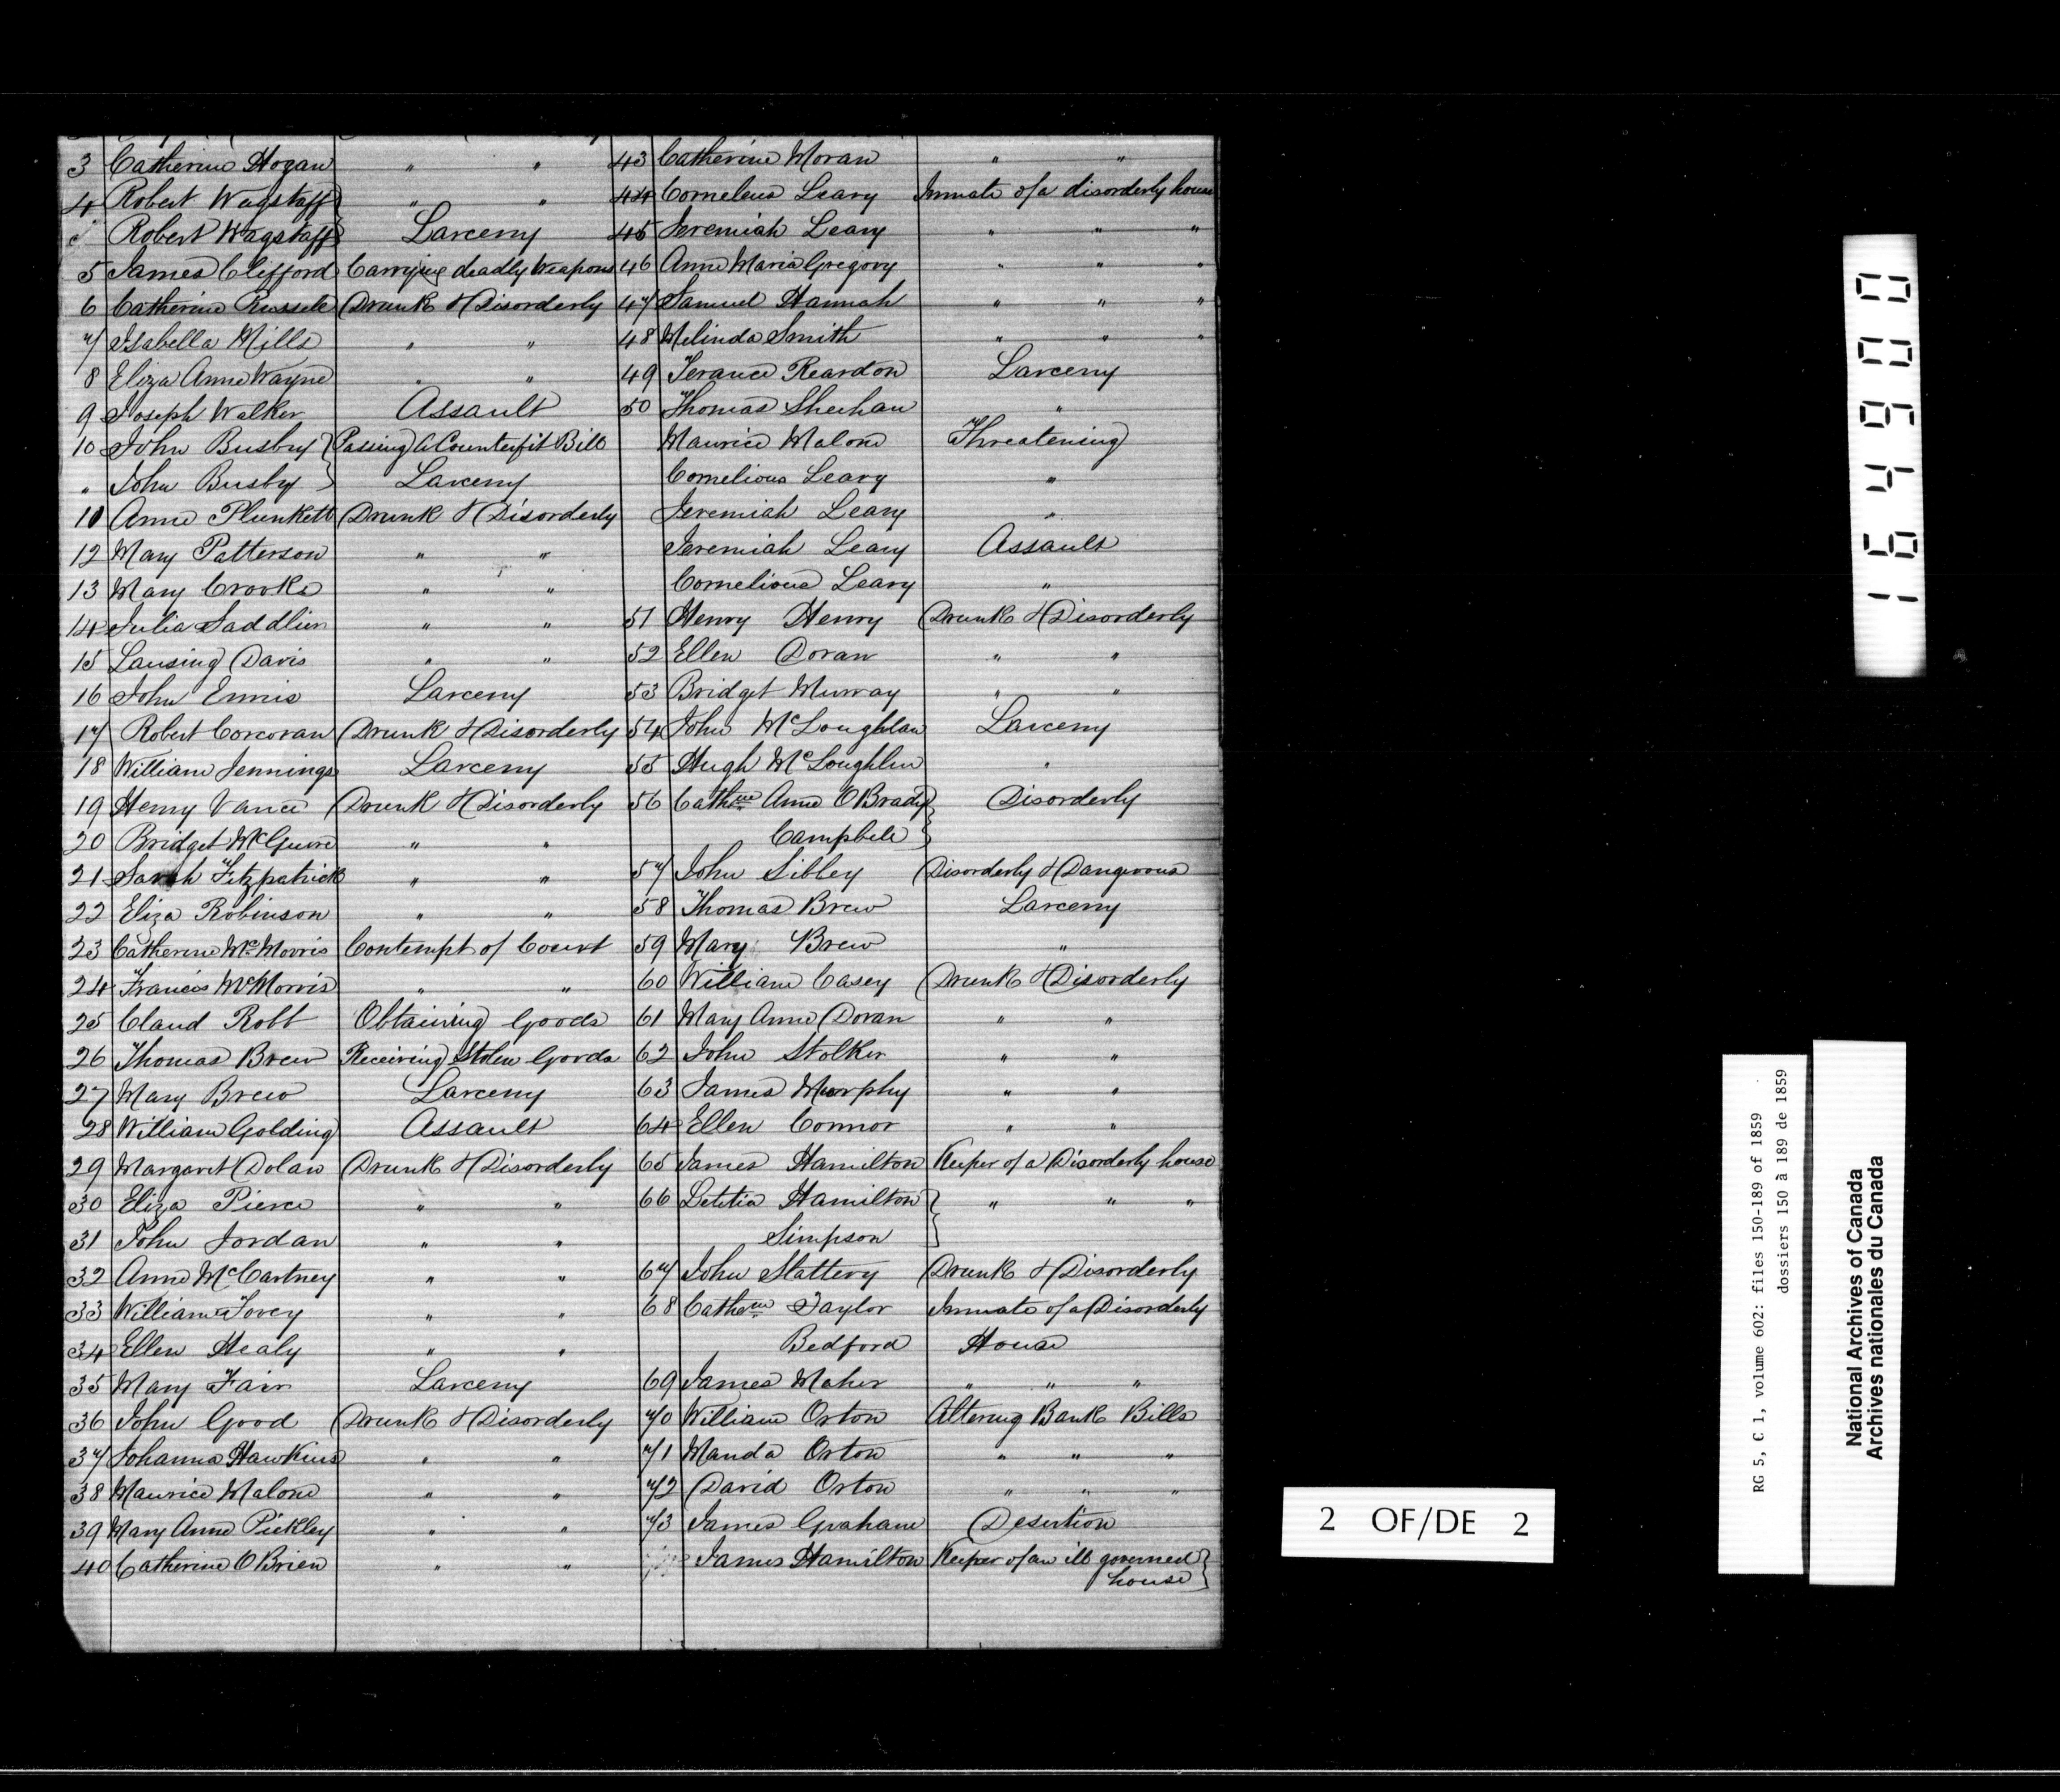 3 Catherine Hogan " "
4 Robert Wagstaff } " "
Robert Wagstaff } Larceny
5 James Clifford Carrying deadly Weapons
6 Catherine Russell Drunk & Disorderly
7 Isabella Mills " "
8 Eliza Anne Wayne " "
9 Joseph Walker Assault
10 John Busby } Passing a Counterfit Bill
" John Busby } Larceny
11 Anne Plunkett Drunk & Disorderly
12 Mary Patterson " "
13 Mary Crooks " "
14 Julia Saddlier " "
15 Lansing Davis " "
16 John Ennis Larceny
17 Robert Corcoran Drunk & Disorderly
18 William Jennings Larceny
19 Henry Vance Drunk & Disorderly
20 Bridget McGuire " "
21 Sarah Fitzpatrick " "
22 Eliza Robinson " "
23 Catherine McMorris Contempt of Court
24 Francis McMorris " "
25 Claud Robb Obtaining Goods
26 Thomas Brew Receiving Stolen Goods
27 Mary Brew Larceny
28 William Golding Assault
29 Margaret Dolan Drunk & Disorderly
30 Eliza Pierce " "
31 John Jordan " "
32 Anne McCartney " "
33 William Tovey " "
34 Ellen Healy " "
35 Mary Fair Larceny
36 John Good Drunk & Disorderly
37 Johanna Hawkins " "
38 Maurice Malone " "
39 Mary Anne Pickley " "
40 Catherine OBrien " "
43 Catherine Moran " "
44 Cornelius Leary Inmate of a disorderly house
45 Jeremiah Leary " " "
46 Anne Maria Gregory " " "
47 Samuel Hannah " " "
48 Melinda Smith " " "
49 Terance Reardon Larceny
50 Thomas Sheehan "
Maurice Malone Threatening
Cornelious Leary "
Jeremiah Leary "
Jeremiah Leary Assault
Cornelious Leary "
51 Henry Henry Drunk & Disorderly
52 Ellen Doran " "
53 Bridget Murray " "
54 John McLoughlan Larceny
55 Hugh McLoughlin "
56 Cathne Anne OBrady } Disorderly
Campbell }
57 John Sibley Disorderly & Dangerous
58 Thomas Brew Larceny
59 Mary Brew "
60 William Casey Drunk & Disorderly
61 Mary Anne Doran " "
62 John Stolker " "
63 James Murphy " "
64 Ellen Connor " "
65 James Hamilton Keeper of a Disorderly house
66 Letitia Hamilton } " " "
Simpson }
67 John Slattery Drunk & Disorderly
68 Cathne Taylor Inmate of a Disorderly
Bedford House
69 James Maher " " "
70 William Orton Altering Bank Bills
71 Manda Orton " " "
72 David Orton " " "
73 James Graham Desertion
James Hamilton Keeper of an ill governed }
house }
164900
RG 5, C 1, volume 602: files 150-189 of 1859
dossiers 150 à 189 de 1859
National Archives of Canada
Archives nationales du Canada
2 OF/DE 2